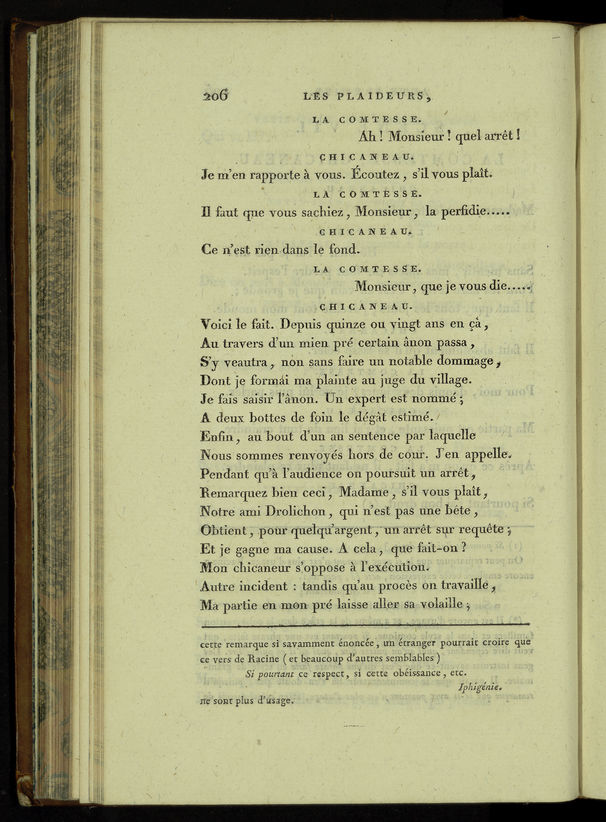 206 LES PLAIDEURS,
LA COMTESSE.
Ah ! Monsieur ! quel arrêt !
CHICANEAU.
Je m'en rapporte à vous. Écoutez, s'il vous plaît.
LA COMTESSE.
Il faut que vous sachiez, Monsieur, la perfidie.....
CHICANEAU.
Ce n'est rien dans le fond.
LA COMTESSE.
Monsieur, que je vous die.....
CHICANEAU.
Voici le fait. Depuis quinze ou vingt ans en çà,
Au travers d'un mien pré certain ânon passa,
S'y veautra, non sans faire un notable dommage,
Dont je formai ma plainte au juge du village.
Je fais saisir l'ânon. Un expert est nommé ;
A deux bottes de foin le dégât estimé.
Enfin, au bout d'un an sentence par laquelle
Nous sommes renvoyés hors de cour. J'en appelle.
Pendant qu'à l'audience on poursuit un arrêt,
Remarquez bien ceci, Madame, s'il vous plaît,
Notre ami Drolichon, qui n'est pas une bête,
Obtient, pour quelqu'argent, un arrêt sur requête ;
Et je gagne ma cause. A cela, que fait-on ?
Mon chicaneur s'oppose à l'exécution.
Autre incident : tandis qu'au procès on travaille,
Ma partie en mon pré laisse aller sa volaille ;
cette remarque si savamment énoncée, un étranger pourrait croire que
ce vers de Racine ( et beaucoup d'autres semblables )
Si pourtant ce respect, si cette obéissance, etc.
Iphigénie.
ne sont plus d'usage.